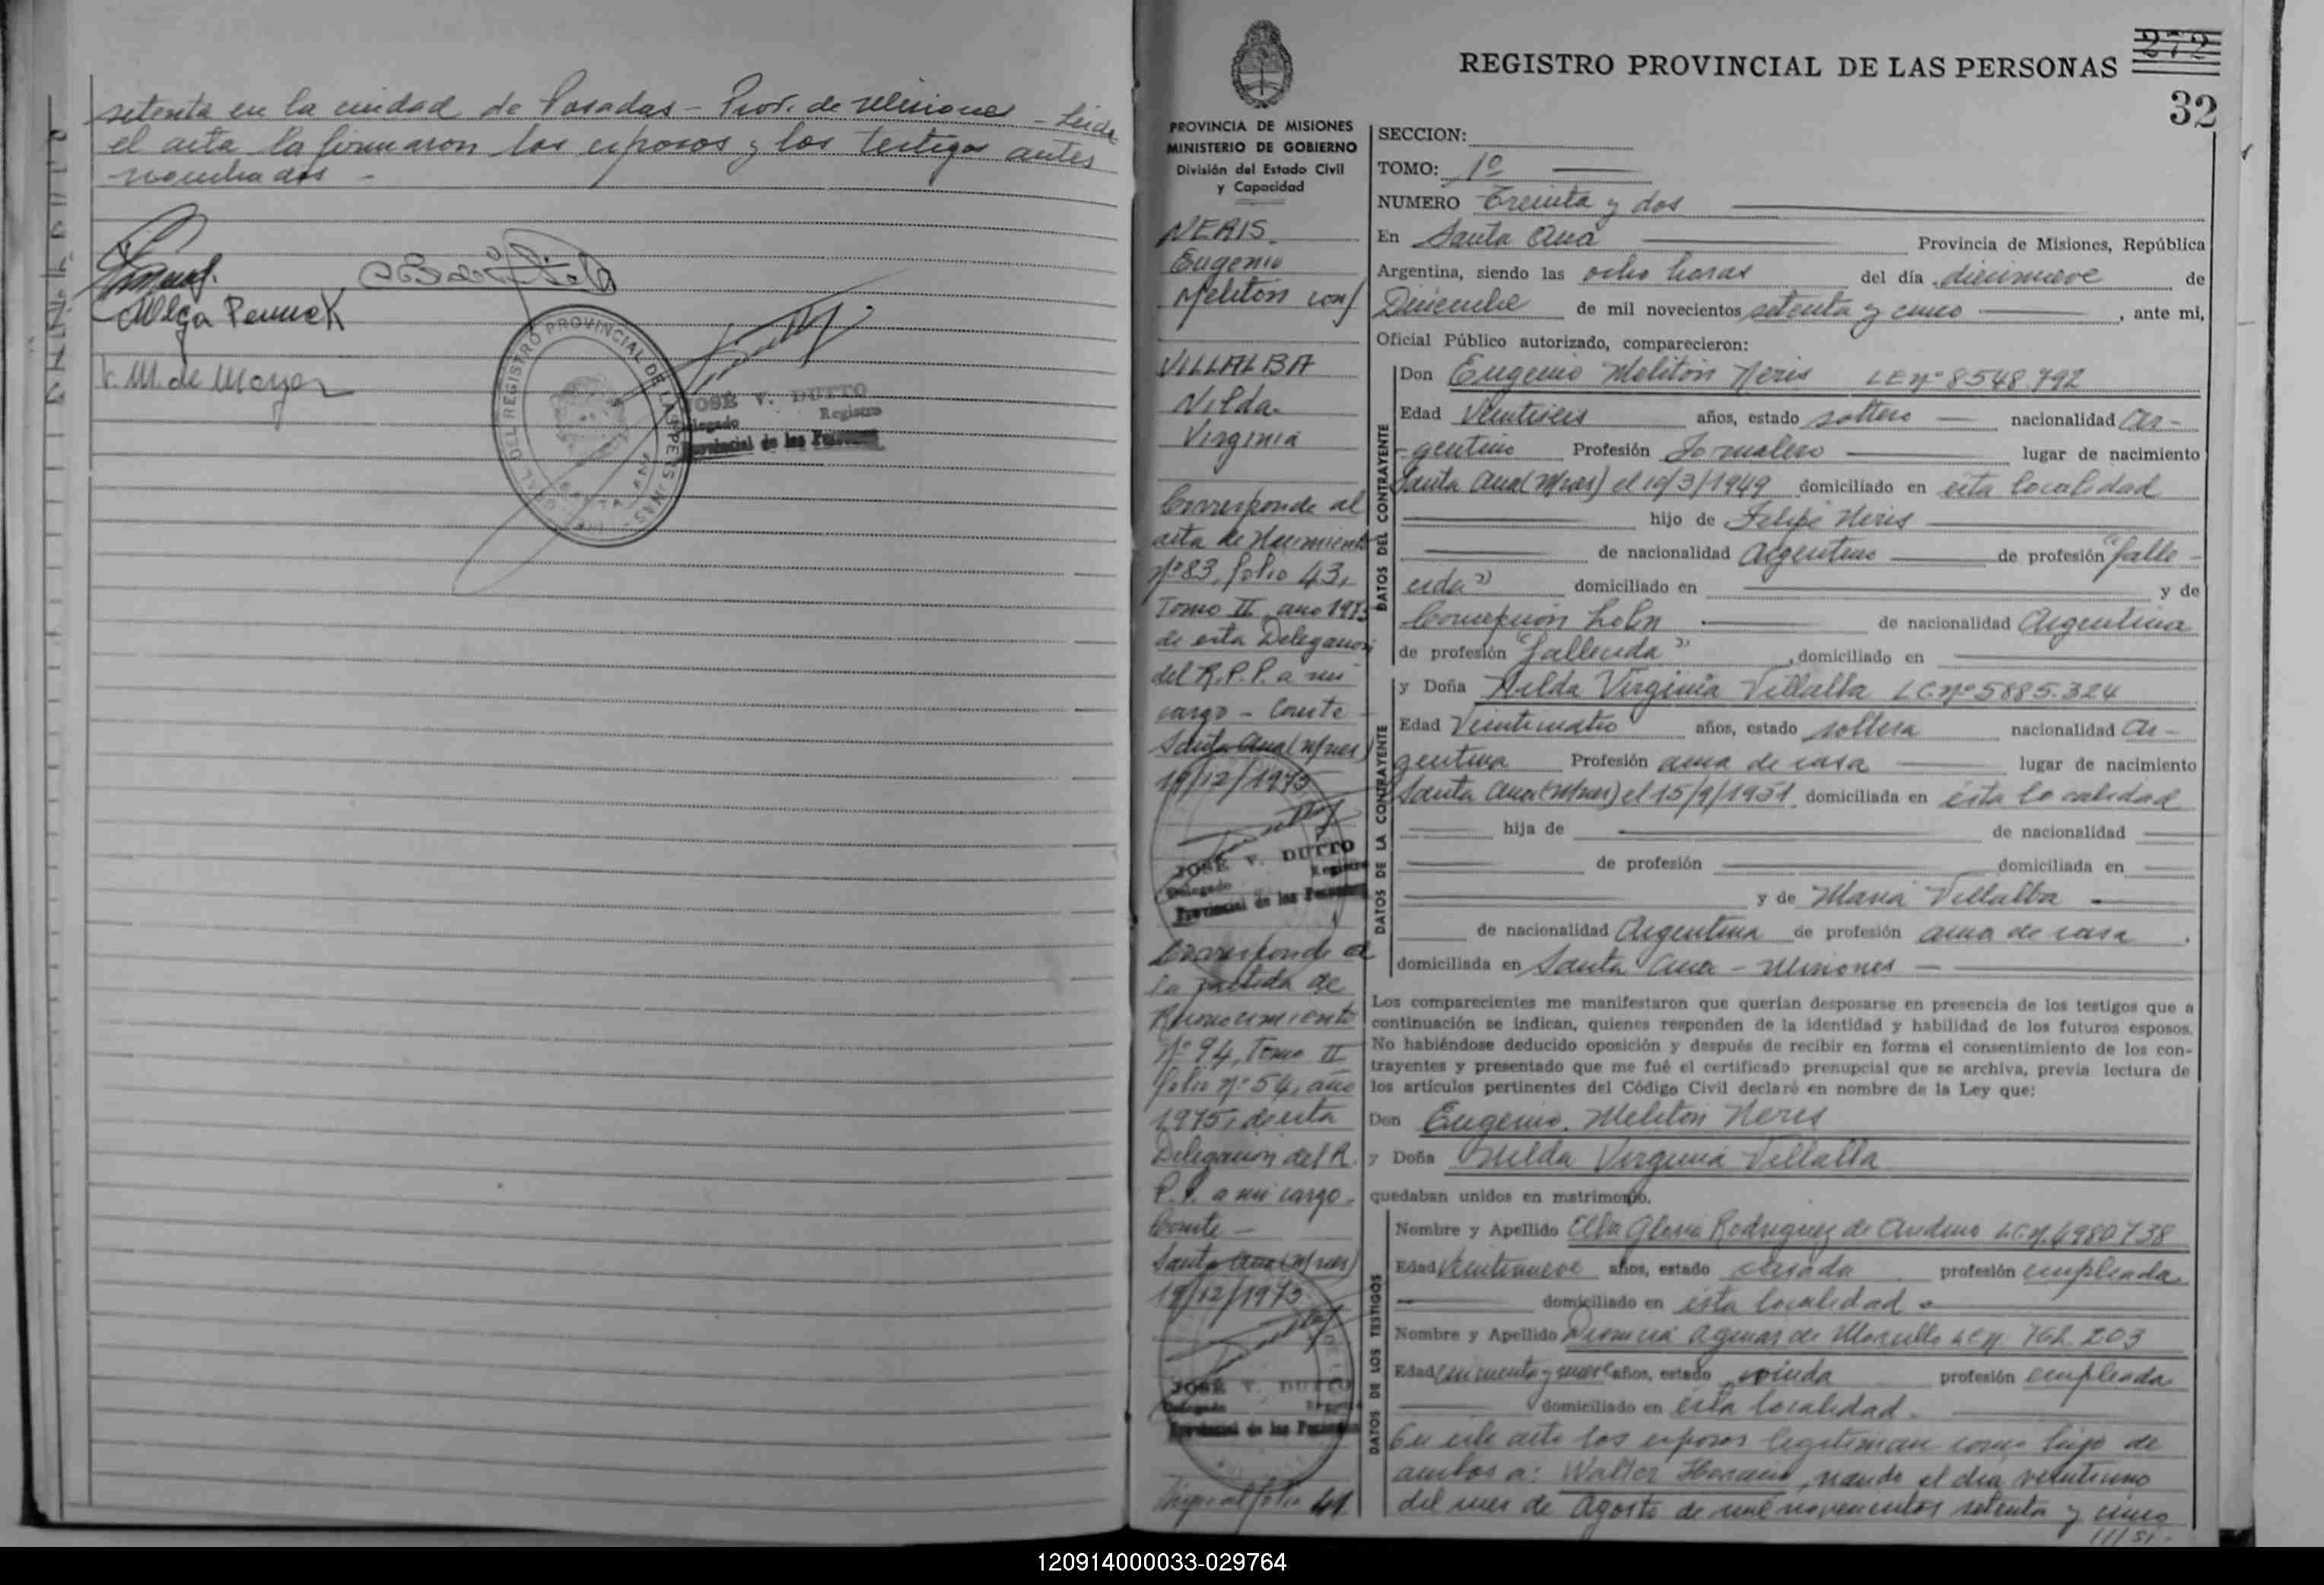 setenta en la ciudad de Posadas - Prov. de Misiones - Leida
el acta la firmaron los esposos y los testigos antes
nombrados -
Olga
V. M. de Moyer
REGISTRO PROVINCIAL DE LAS PERSONAS
JOSE V. DUTTO
Delegado Registro
Provincial de las Personas
REGISTRO PROVINCIAL DE LAS PERSONAS
272
32
PROVINCIA DE MISIONES
MINISTERIO DE GOBIERNO
División del Estado Civil
y Capacidad
NERIS
Eugenio
Meliton con/
VILLALBA
Nilda
Virginia
Corresponde al
acta de Nacimiento
Nº 83, folio 43,
Tomo II, año 1975
de esta Delegacion
del R.P.P. a mi
cargo - Conste
Santa Ana (Mnes)
19/12/1975
JOSE V. DUTTO
Delegado Registro
Provincial de las Personas
Corresponde a
la partida de
Reconocimiento
Nº 94, Tomo II
folio nº 54, año
1975, de esta
Delegacion del R.
P.P. a mi cargo -
Conste -
Santa Ana (Mnes)
19/12/1975
JOSE V. DUTTO
Delegado Registro
Provincial de las Personas
al folio 41
SECCION:
TOMO: 1º
NUMERO Treinta y dos
En Santa Ana Provincia de Misiones, República
Argentina, siendo las ocho horas del día diecinueve de
Diciembre de mil novecientos setenta y cinco, ante mi,
Oficial Público autorizado, comparecieron:
DATOS DEL CONTRAYENTE
Don Eugenio Meliton Neris L E nº 8548.792
Edad Veintiseis años, estado soltero nacionalidad Ar-
gentino Profesión Jornalero lugar de nacimiento
Santa Ana (Mnes) el 10/3/1949 domiciliado en esta localidad
hijo de Felipe Neris
de nacionalidad Argentino de profesión "falle-
cido" domiciliado en y de
Concepcion de nacionalidad Argentina
de profesión "fallecida", domiciliado en
DATOS DE LA CONTRAYENTE
y Doña Nilda Virginia Villalba L C nº 5885.324
Edad Veinticuatro años, estado soltera nacionalidad Ar-
gentina Profesión ama de casa lugar de nacimiento
Santa Ana (Mnes) el 15/9/1951 domiciliada en esta localidad
hija de de nacionalidad
de profesión domiciliada en
y de Maria Villalba
de nacionalidad Argentina de profesión ama de casa,
domiciliada en Santa Ana - Misiones -
Los comparecientes me manifestaron que querían desposarse en presencia de los testigos que a
continuación se indican, quienes responden de la identidad y habilidad de los futuros esposos.
No habiéndose deducido oposición y después de recibir en forma el consentimiento de los con-
trayentes y presentado que me fué el certificado prenupcial que se archiva, previa lectura de
los artículos pertinentes del Código Civil declaré en nombre de la Ley que:
Don Eugenio Meliton Neris
y Doña Nilda Virginia Villalba
quedaban unidos en matrimonio.
DATOS DE LOS TESTIGOS
Nombre y Apellido Elba Gloria Rodriguez de Andino L.C. nº 4980738
Edad Veintinueve años, estado casada profesión empleada
domiciliado en esta localidad
Nombre y Apellido Aguiar de Morcillo L C nº 203
Edad cincuenta y nueve años, estado viuda profesión empleada
domiciliado en esta localidad.
En este acto los esposos legitiman como hijo de
ambos a: Walter Horacio, nacido el dia veintiuno
del mes de Agosto de mil novecientos setenta y cinco
///si.-
120914000033-029764